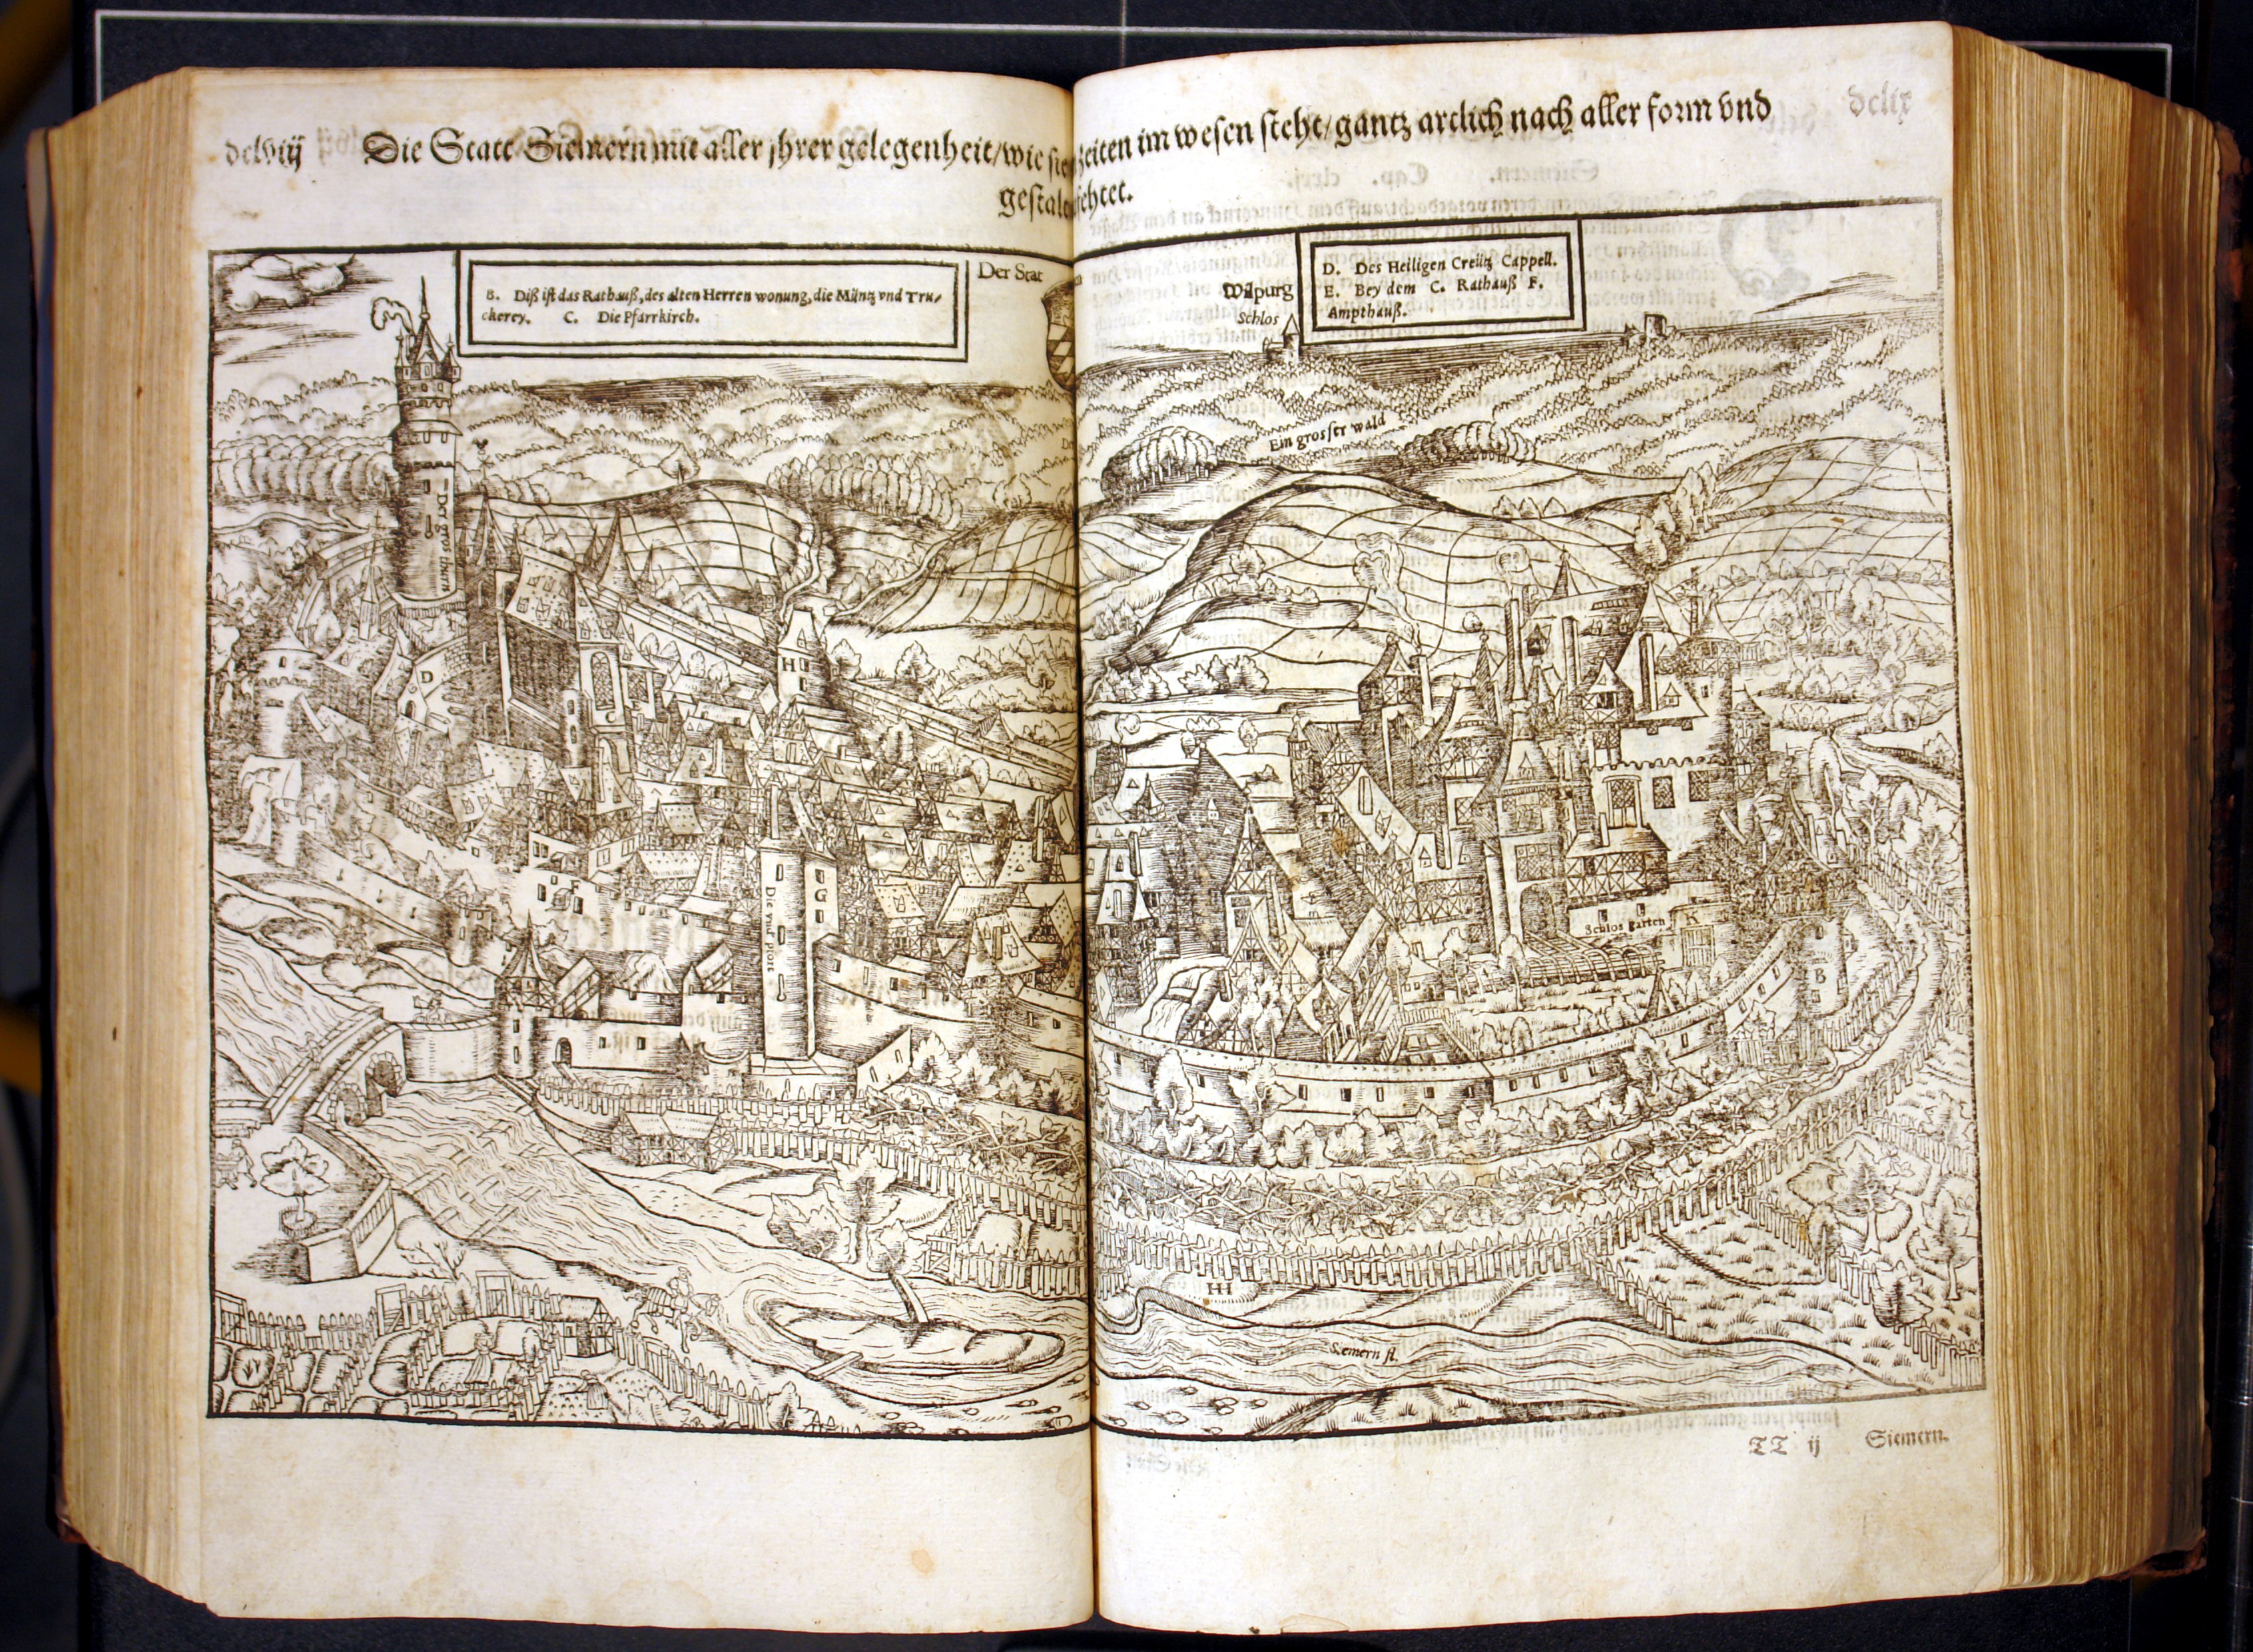 dclviij
Die Statt Siemern mit aller jhrer gelegenheit/wie sie zeiten im wesen steht/gantz artlich nach aller form vnd
dclix
gestal sehtet.
B. Diß ist das Rathauß, des alten Herren wonung, die Müntz vnd Tru-
ckerey. C. Die Pfarrkirch.
Der Stat
Wilpurg
Schlos
D. Des Heiligen Creütz Cappell.
E. Bey dem C. Rathauß F.
Ampthauß.
Ein grosser wald
Der gros thurn
H
D
G
F
Die vnd' pfort
Schlos garten K
B
A
HH
Siemern fl.
TT ij Siemern.